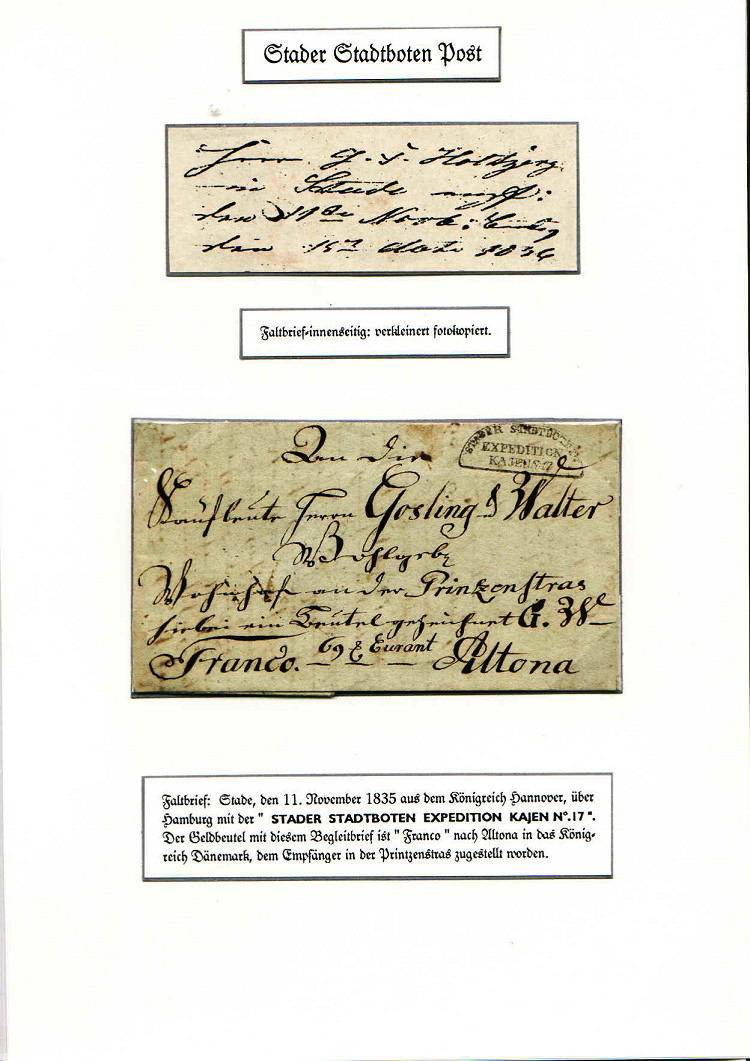 Stader Stadtboten Post
Herrn G. F. Holtzerg
in Stade
den 11ten Novb:
den 15t dato
Faltbrief-innenseitig: verkleinert fotokopiert.
STADER STADTBOTEN
EXPEDITION
KAJEN No. 17
An die
Kaufleute Herrn Gosling & Walter
Wohlgeb
Wohnhaft an der Printzenstras
hiebei ein Beutel gezeichnet G. W
Franco. 69 Courant Altona
Faltbrief: Stade, den 11. November 1835 aus dem Königreich Hannover, über
Hamburg mit der " STADER STADTBOTEN EXPEDITION KAJEN No.17 ".
Der Geldbeutel mit diesem Begleitbrief ist " Franco " nach Altona in das König-
reich Dänemark, dem Empfänger in der Printzenstras zugestellt worden.